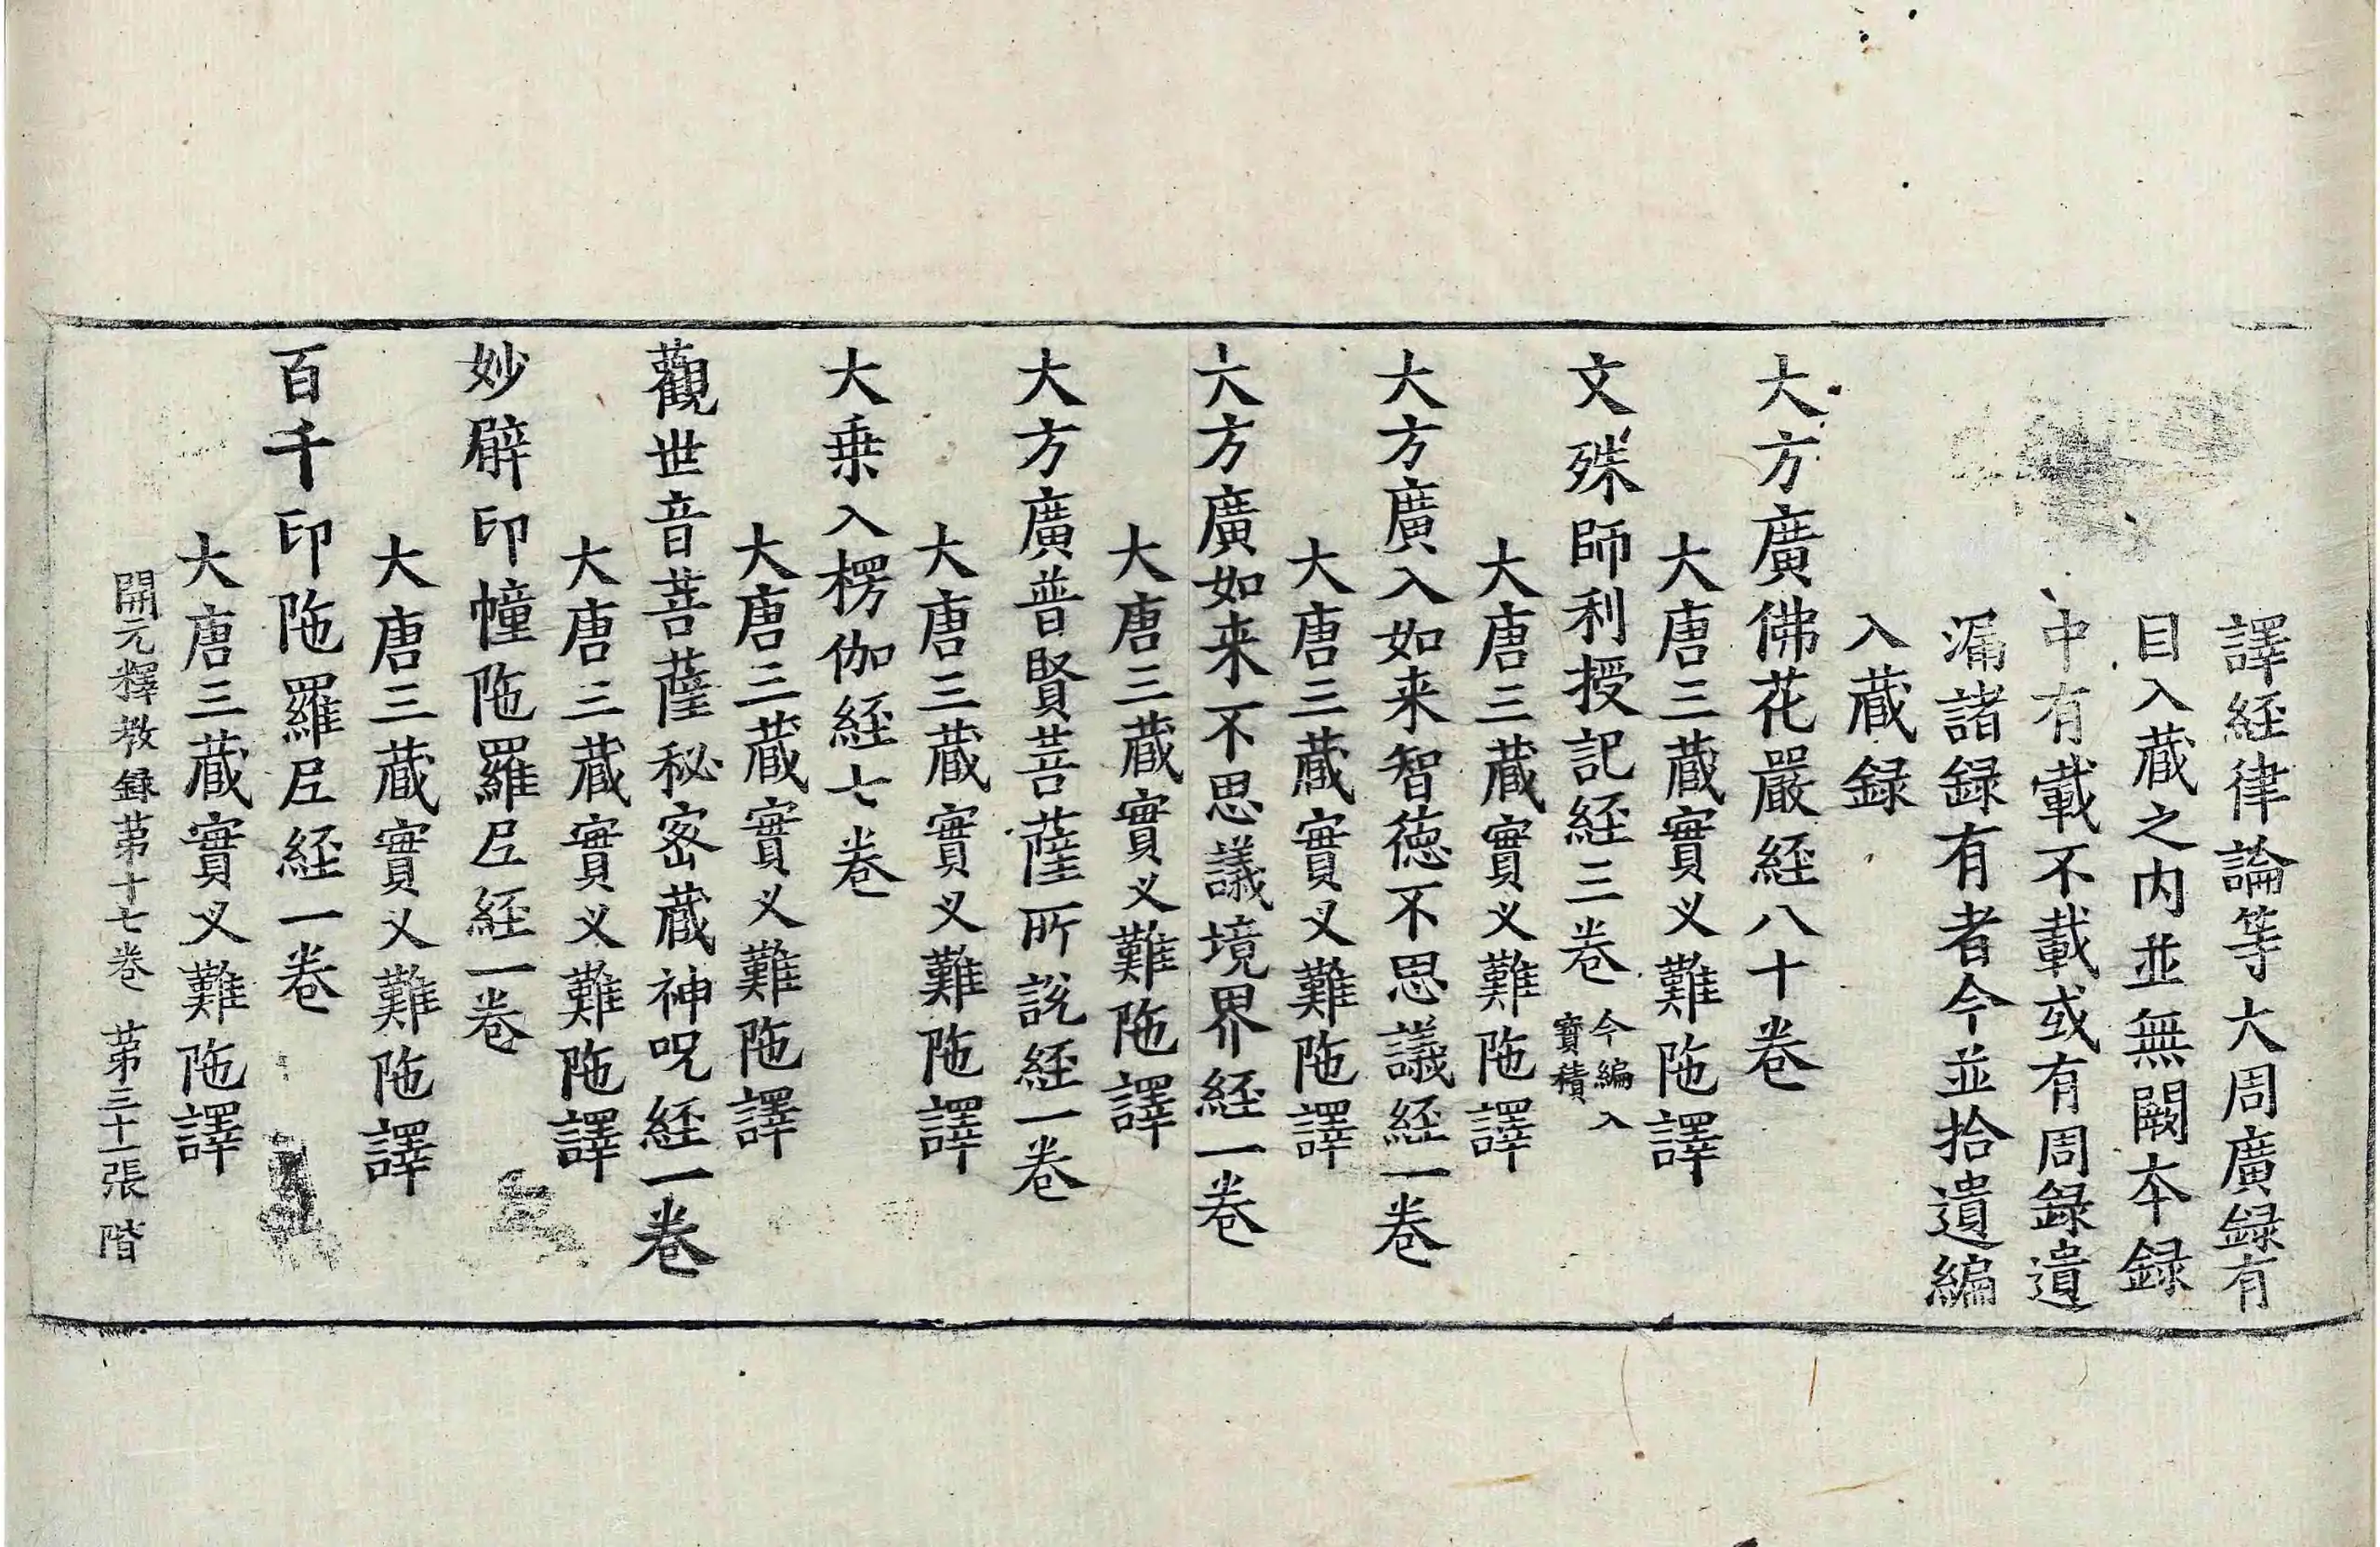 譯経律論等大周廣録有
目入蔵之内並無闕本録
中有載不載或有周録遺
漏諸録有者今並拾遺編
入蔵録
大方廣佛花嚴経八十卷
大唐三蔵實叉難陁譯
文殊師利授記経三卷 今編入
寶積
大唐三蔵實叉難陁譯
大方廣入如来智德不思議経一卷
大唐三蔵實叉難陁譯
大方廣如来不思議境界経一卷
大唐三蔵實叉難陁譯
大方廣普賢菩薩所說経一卷
大唐三蔵實叉難陁譯
大乗入楞伽経七卷
大唐三蔵實叉難陁譯
觀世音菩薩秘密蔵神呪経一卷
大唐三蔵實叉難陁譯
妙臂印幢陁羅尼経一卷
大唐三蔵實叉難陁譯
百千印陁羅尼経一卷
大唐三蔵實叉難陁譯
開元釋教録苐十七卷 苐三十一張 階